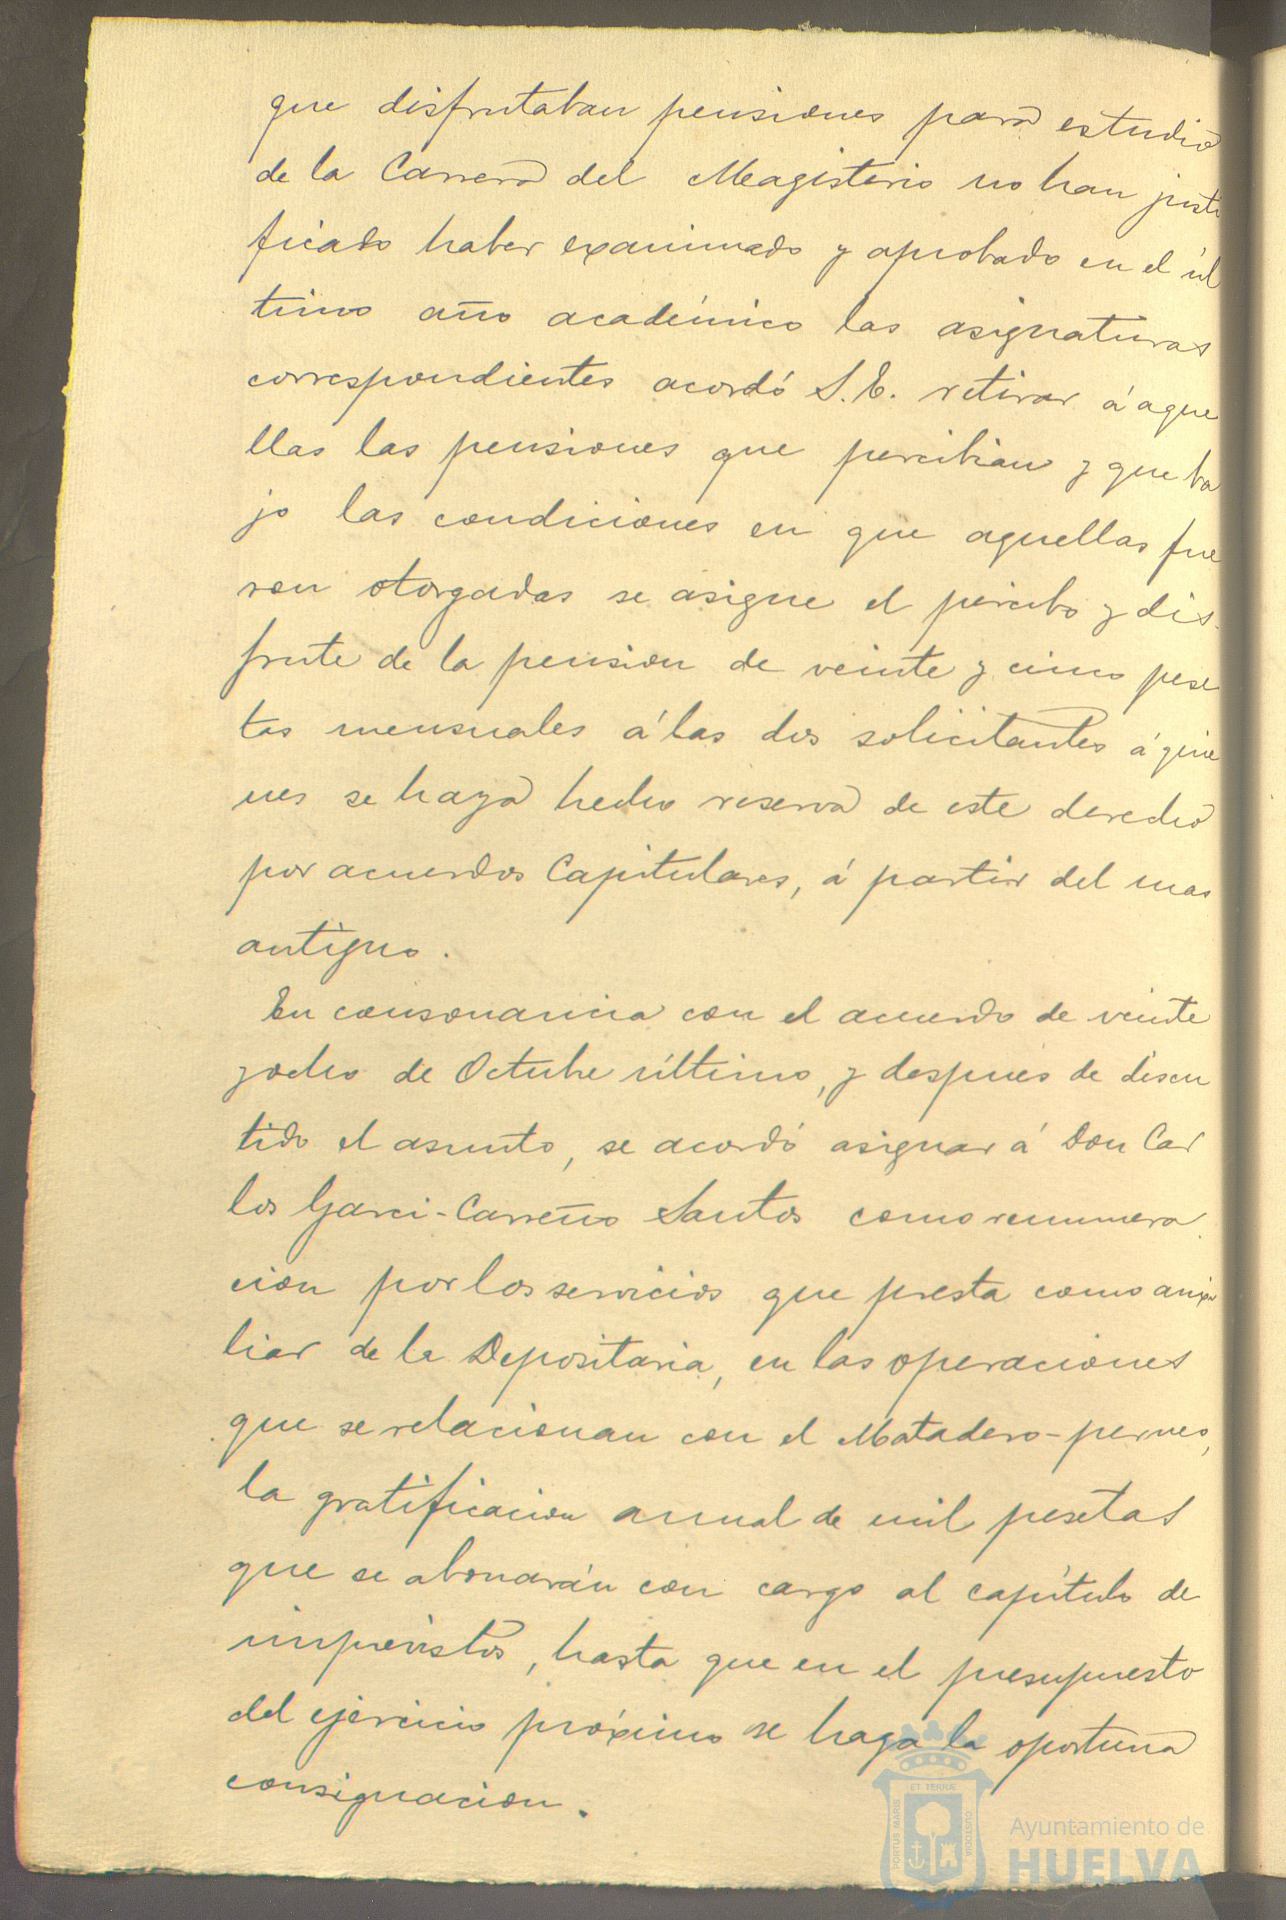 que disfrutaban pensiones para estudio
de la Carrera del Magisterio no han justi
ficado haber examinado y aprobado en el úl
timo año académico las asignaturas
correspondientes acordó S.E. retirar á aque
llas las pensiones que percibian y que ba
jo las condiciones en que aquellas fue
ron otorgadas se asigne el percibo y dis-
frute de la pension de veinte y cinco pese
tas mensuales á las dos solicitantes á quie
nes se haya hecho reserva de este derecho
por acuerdos Capitulares, á partir del mas
antiguo.
En consonancia con el acuerdo de veinte
y ocho de Octubre último, y después de discu
tido el asunto, se acordó asignar á Don Car
los Garci-Carreño Santos como remunera
cion por los servicios que presta como auxi
liar de la Depositaria, en las operaciones
que se relacionan con el Matadero-perneo,
la gratificacion anual de mil pesetas
que se abonarán con cargo al capítulo de
imprevistos, hasta que en el presupuesto
del ejercicio próximo se haga la oportuna
consignacion.
PORTUS MARIS ET TERRÆ CUSTODIA
Ayuntamiento de
HUELVA